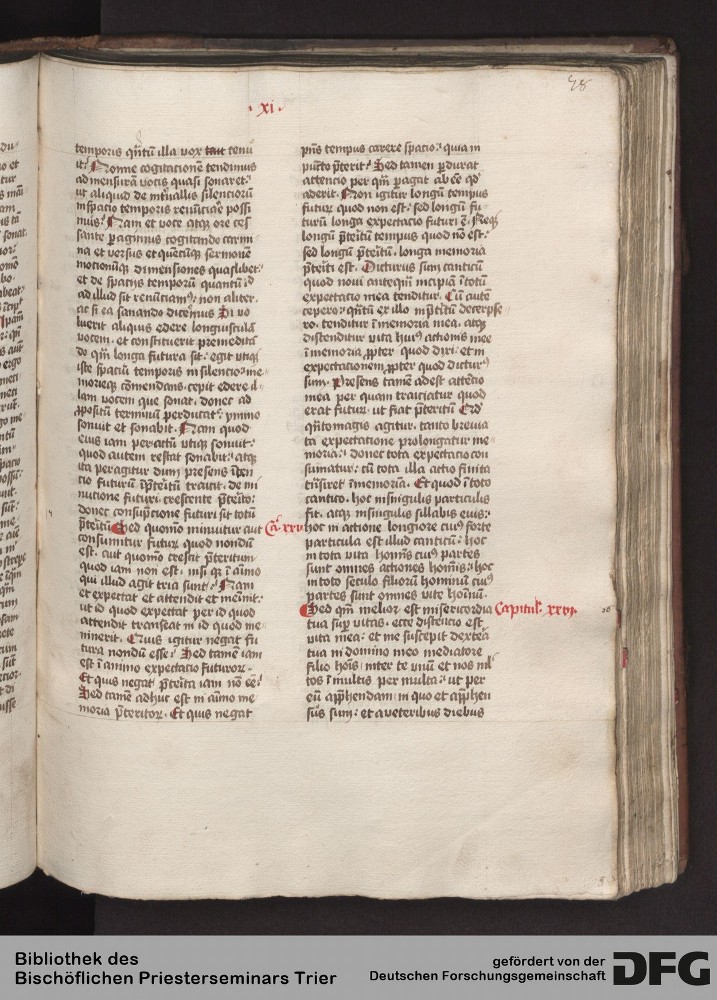 48
· xi ·
temporis qntū illa vox tenu
it: Nonne cogitationē tendimus
ad mensurā vocis quasi sonaret:
ut aliquid de int̄uallis silencioru̅
in spacio temporis renūciare possi
mus: Nam et voce atq̨ ore ces
sante p̱agimus cogitando carmi
na et versus et quēcūq̨ sermonē
motionūq̨ dimensiones quaslibet:
et de spacijs temporū quantū i̅
ad illud sit renūciam⁹: non aliter
ac si ea sonando dicem̄us Si vo
luerit aliquis edere longiusculā
vocem, et constituerit premedita̅
do q̄m longa futura sit: egit utiq̨
iste spaciū temporis in silencio: me
morieq̨ cōmendans. cepit edere il
lam vocem que sonat. donec ad
p̱positū terminū perducat̄: ymmo
sonuit et sonabit. Nam quod
eius iam per actū utiq̨ sonuit:
quod autem restat sonabit: atq̨
ita peragitur dum presens i̅ten
cio futurū i̅ p̄teritū traicit. de mi
nucione futuri. crescente p̄terito:
donec consūpcione futuri sit totū
p̄teritū Sed quomō minuitur aut Ca. xxv
consumitur futurū quod nondū
est. aut quomō crescit p̄teritum
quod iam non est. nisi q̨ i̅ aīmo
qui illud agit tria sunt: Nam
et expectat et attendit et memīt:
ut id quod expectat per id quod
attendit transeat in id quod me
minerit. Quis igitur negat fu
tura nondū esse: Sed tamē iam
est i̅ animo expectacio futuror̄.
Et quis negat p̄terita iam nō ēē:
Sed tamē adhuc est in aīmo me
moria p̄teritor̄. Et quis negat
p̄ns tempus carere spacio: quia in
pūcto p̄terit: Sed tamen p̱durat
attencio per q̄m p̱agat abēē qd̓
aderit. Non igitur longū tempus
futur̄ quod non est: sed longū fu
turū longa expectacio futuri ē. Neq̨
longū p̄teritū tempus quod nō est:
sed longū p̄teritū. longa memoria
p̄teriti est. Dicturus sum canticū
quod noui antequā incipiā i̅ totū
expectacio mea tenditur. Cū autē
cepero: qntū ex illo in p̄teritū decerpse
ro. tenditur i̅ memoria mea. atq̨
distenditur vita hui⁹ actionis mee
i̅ memoria ꝓpter quod dixi: et in
expectationem ꝓpter quod dictur⁹
sum. Presens tamē adest attēcio
mea per quam traiciatur quod
erat futur̄. ut fiat p̄teritū Qd̓
qn̄to magis agitur. tanto breuia
ta expectatione prolongatur me
moria: donec tota expectacio con
sumatur: cū tota illa actio finita
trāsiret i̅ memoria. Et quod i̅ toto
cantico. hoc in singulis particulis
fit. atq̨ in singulis sillabis eius:
hoc in actione longiore cui⁹ forte
particula est illud canticū: hoc
in tota vita homīs cui⁹ partes
sunt omnes actiones homīs: hoc
in toto seculo filiorū hominū cui⁹
partes sunt omnes vite hoīnū.
Sed qm̄ melior est misericordia Capitul. xxvi.
tua sup̱ vitas. ecce distencio est
vita mea: et me suscepit dextera
tua in domino meo mediatore
filio hoīs inter te vnū et nos ml̓
tos i̅ multis per multa: ut per
eū app̱hendam in quo et app̱hen
sus sum: et a veteribus diebus
Bibliothek des
Bischöflichen Priesterseminars Trier
gefördert von der
Deutschen Forschungsgemeinschaft
DFG